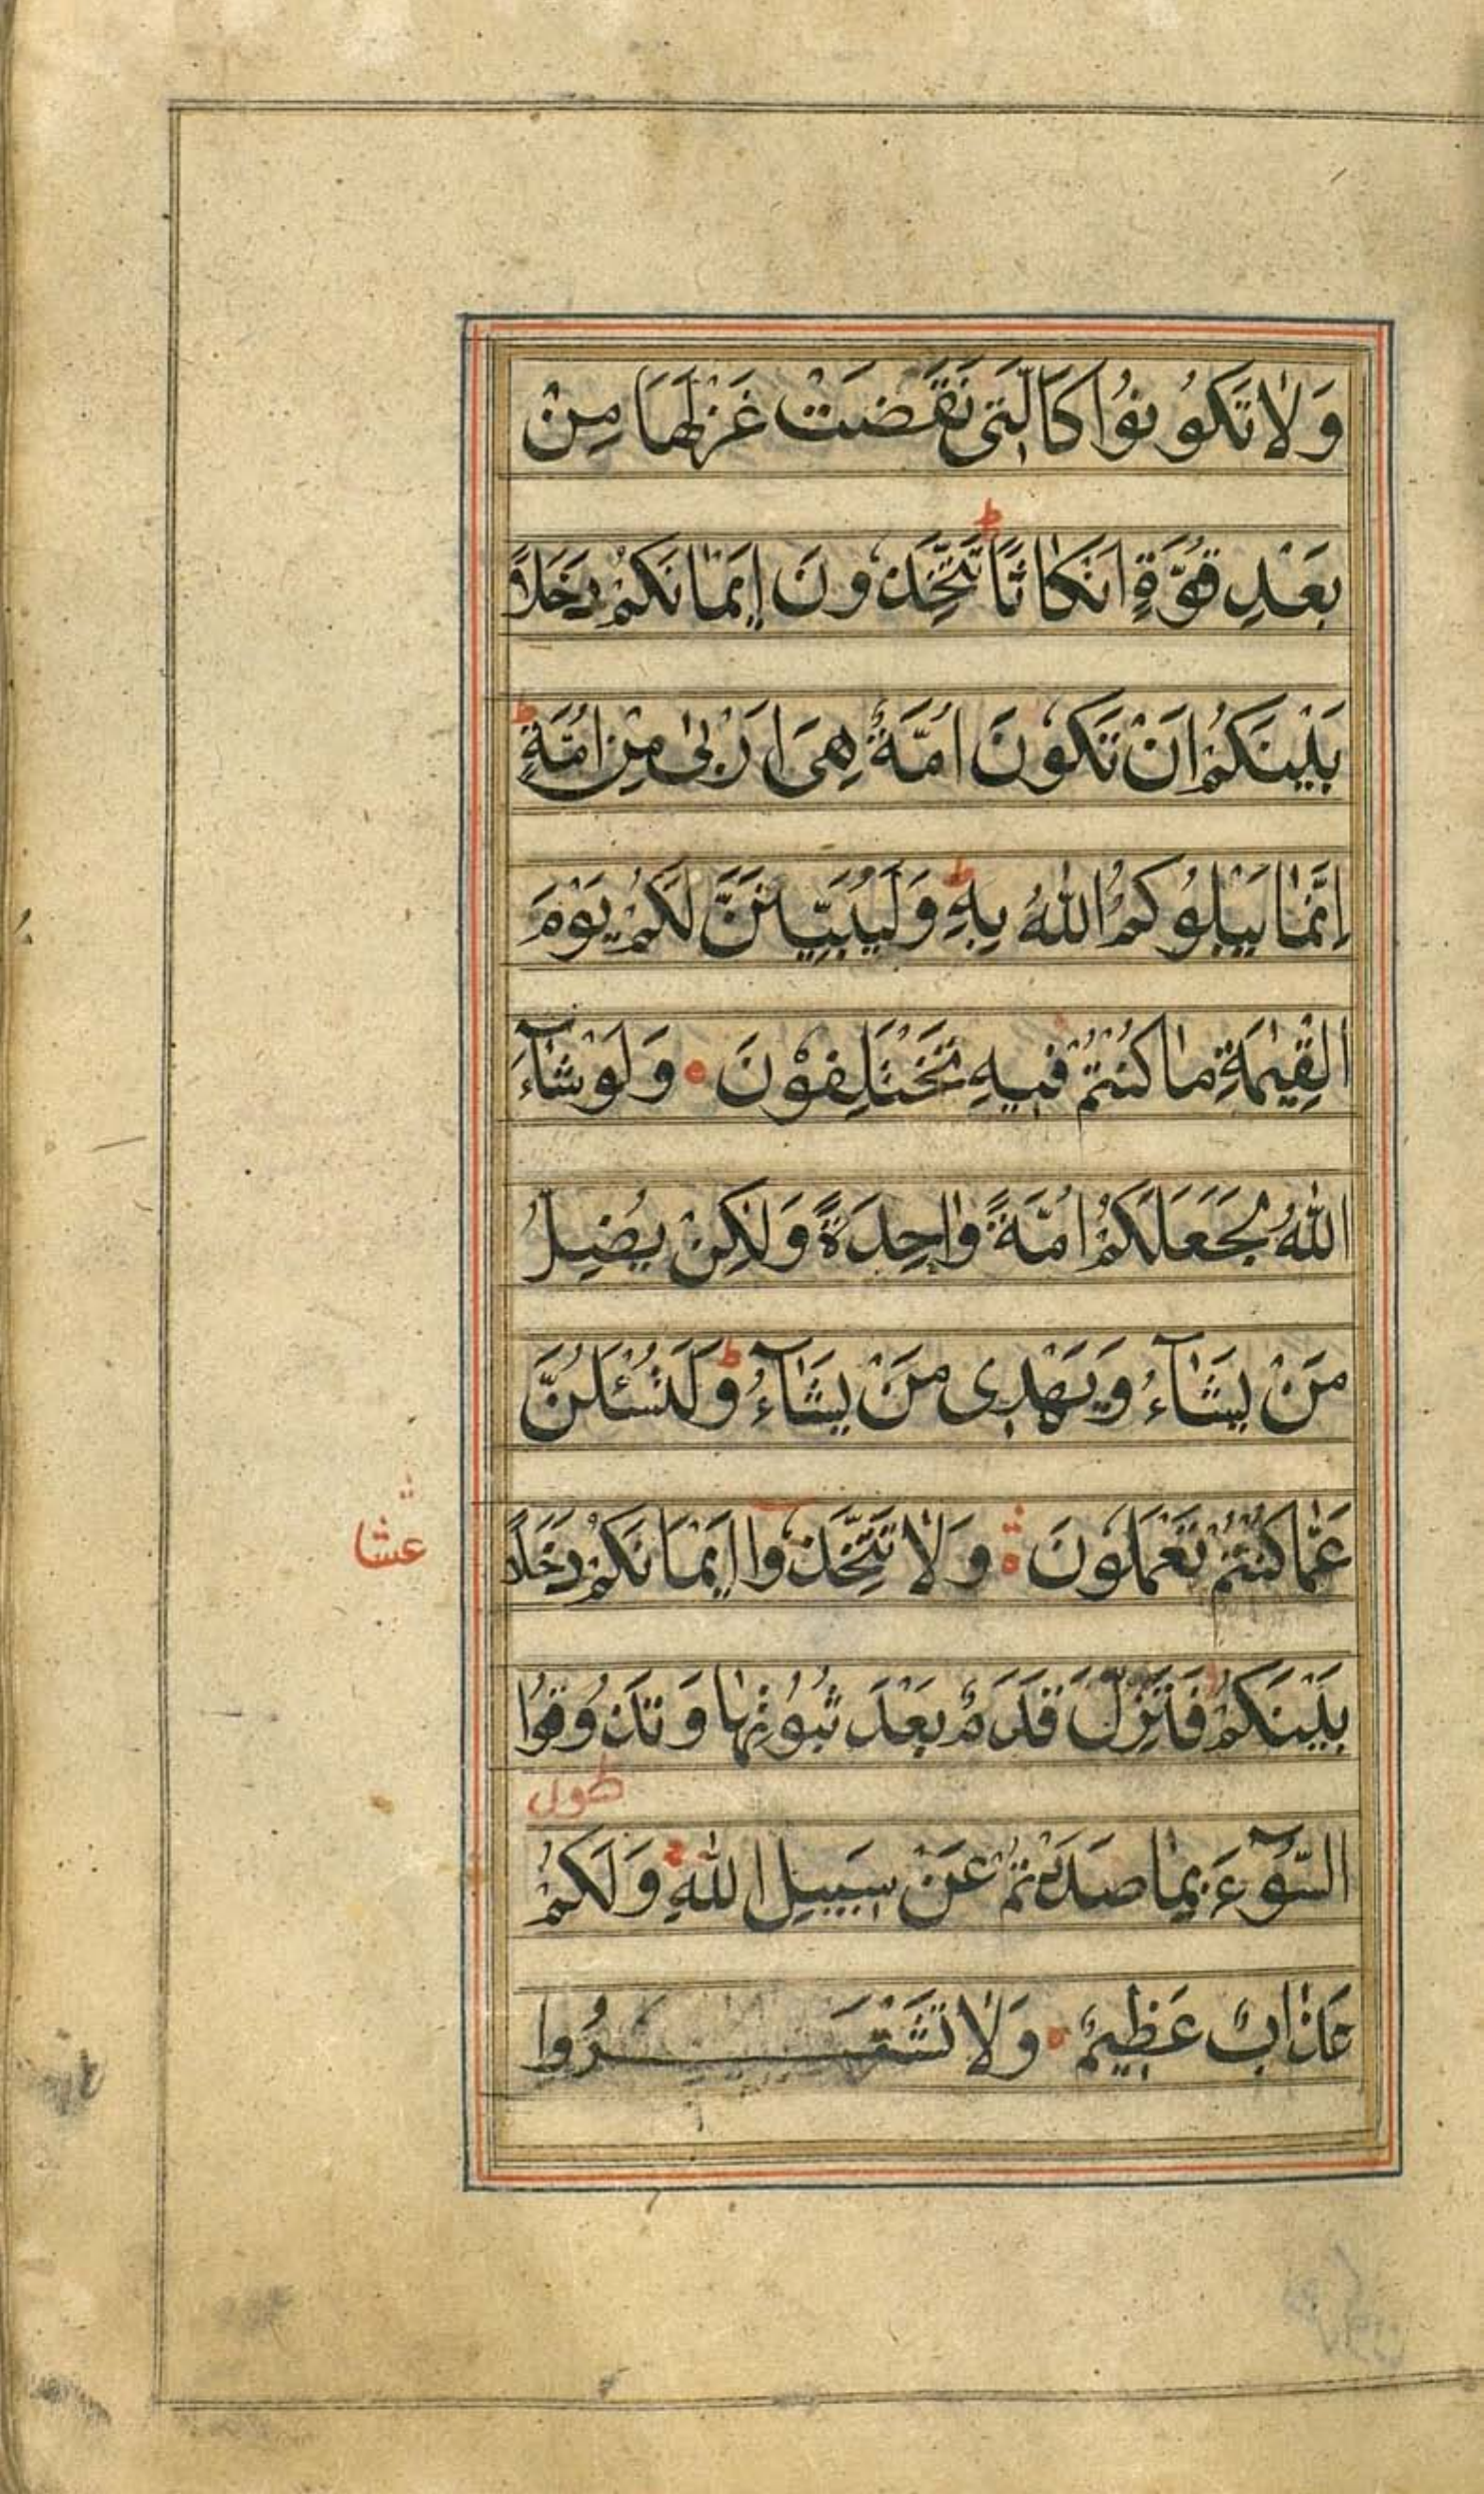 وَلَا تَكُونُوا كَالَّتِی نَقَضَتْ غَزْلَهَا مِنْ
ط
بَعْدِ قُوَّةٍ اَنْكَاثًا تَتَّخِذُونَ اِیْمَانَكُمْ دَخَلًا
بَیْنَكُمْ اَنْ تَكُونَ اُمَّةٌ هِیَ اَرْبٰی مِنْ اُمَّةٍ ط
اِنَّمَا یَبْلُوكُمُ اللّٰهُ بِهِ ط وَلَیُبَیِّنَنَّ لَكُمْ یَوْمَ
الْقِیٰمَةِ مَا كُنْتُمْ فِیهِ تَخْتَلِفُوْنَ وَلَوْ شَآءَ
اللّٰهُ لَجَعَلَكُمْ اُمَّةً وَاحِدَةً وَلٰكِنْ یُضِلُّ
مَنْ یَشَآءُ وَیَهْدِی مَنْ یَشَآءُ ط وَلَتُسْئَلُنَّ
عَمَّا كُنْتُمْ تَعْمَلُونَ وَلَا تَتَّخِذُوا اَیْمَانَكُمْ دَخَلًا
عشا
بَیْنَكُمْ فَتَزِلَّ قَدَمٌ بَعْدَ ثُبُوْتِهَا وَتَذُوقُوا
طول
السُّوٓءَ بِمَا صَدَدْتُمْ عَنْ سَبِیلِ اللّٰهِ وَلَكُمْ
عَذَابٌ عَظِیمٌ وَلَا تَشْتَرُوا